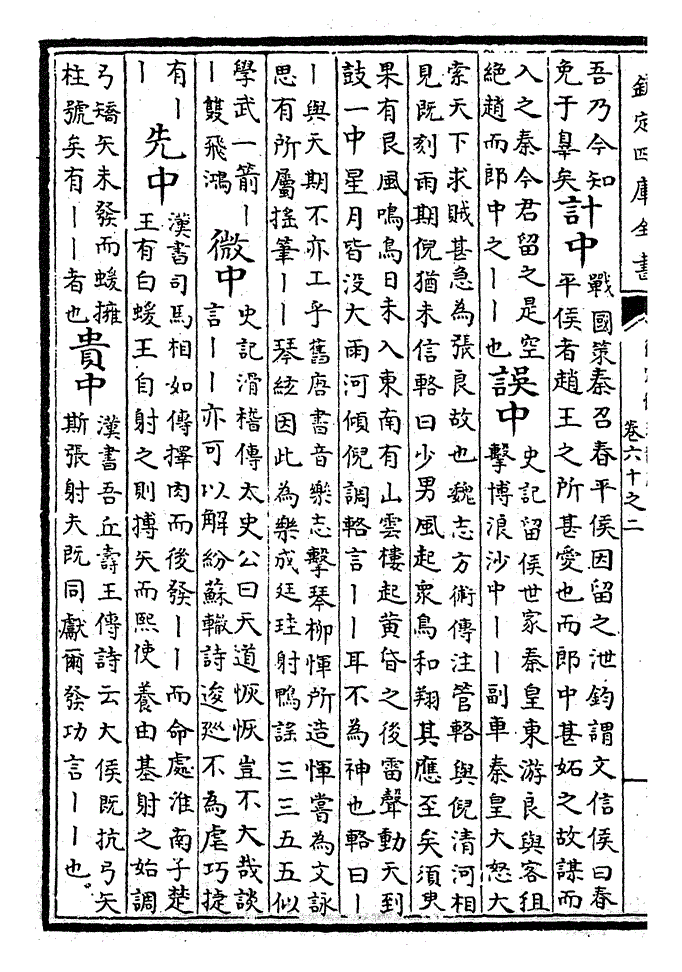 欽定四庫全書
卷六十之二
吾乃今知
免于辠矣
計中
戰國策秦召春平侯因留之泄鈞謂文信侯曰春
平侯者趙王之所甚愛也而郎中甚妬之故謀而
入之秦今君留之是空
絶趙而郎中之丨丨也
誤中
史記留侯世家秦皇東游良與客狙
擊博浪沙中丨丨副車秦皇大怒大
索天下求賊甚急為張良故也魏志方術傳注管輅與倪清河相
見既刻雨期倪猶未信輅曰少男風起衆鳥和翔其應至矣須臾
果有艮風鳴鳥日未入東南有山雲樓起黄昏之後雷聲動天到
鼓一中星月皆没大雨河傾倪調輅言丨丨耳不為神也輅曰丨
丨與天期不亦工乎舊唐書音樂志擊琴柳惲所造惲嘗為文詠
思有所屬搖筆丨丨琴絃因此為樂成廷珪射鴨謡三三五五似
學武一箭丨
丨雙飛鴻
微中
史記滑稽傳太史公曰天道恢恢豈不大哉談
言丨丨亦可以解紛蘇轍詩逡廵不為虐巧捷
有丨
丨
先中
漢書司馬相如傳擇肉而後發丨丨而命處淮南子楚
王有白蝯王自射之則搏矢而熙使養由基射之始調
弓矯矢未發而蝯擁
柱號矣有丨丨者也
貴中
漢書吾丘壽王傳詩云大侯既抗弓矢
斯張射夫既同獻爾發功言丨丨也。